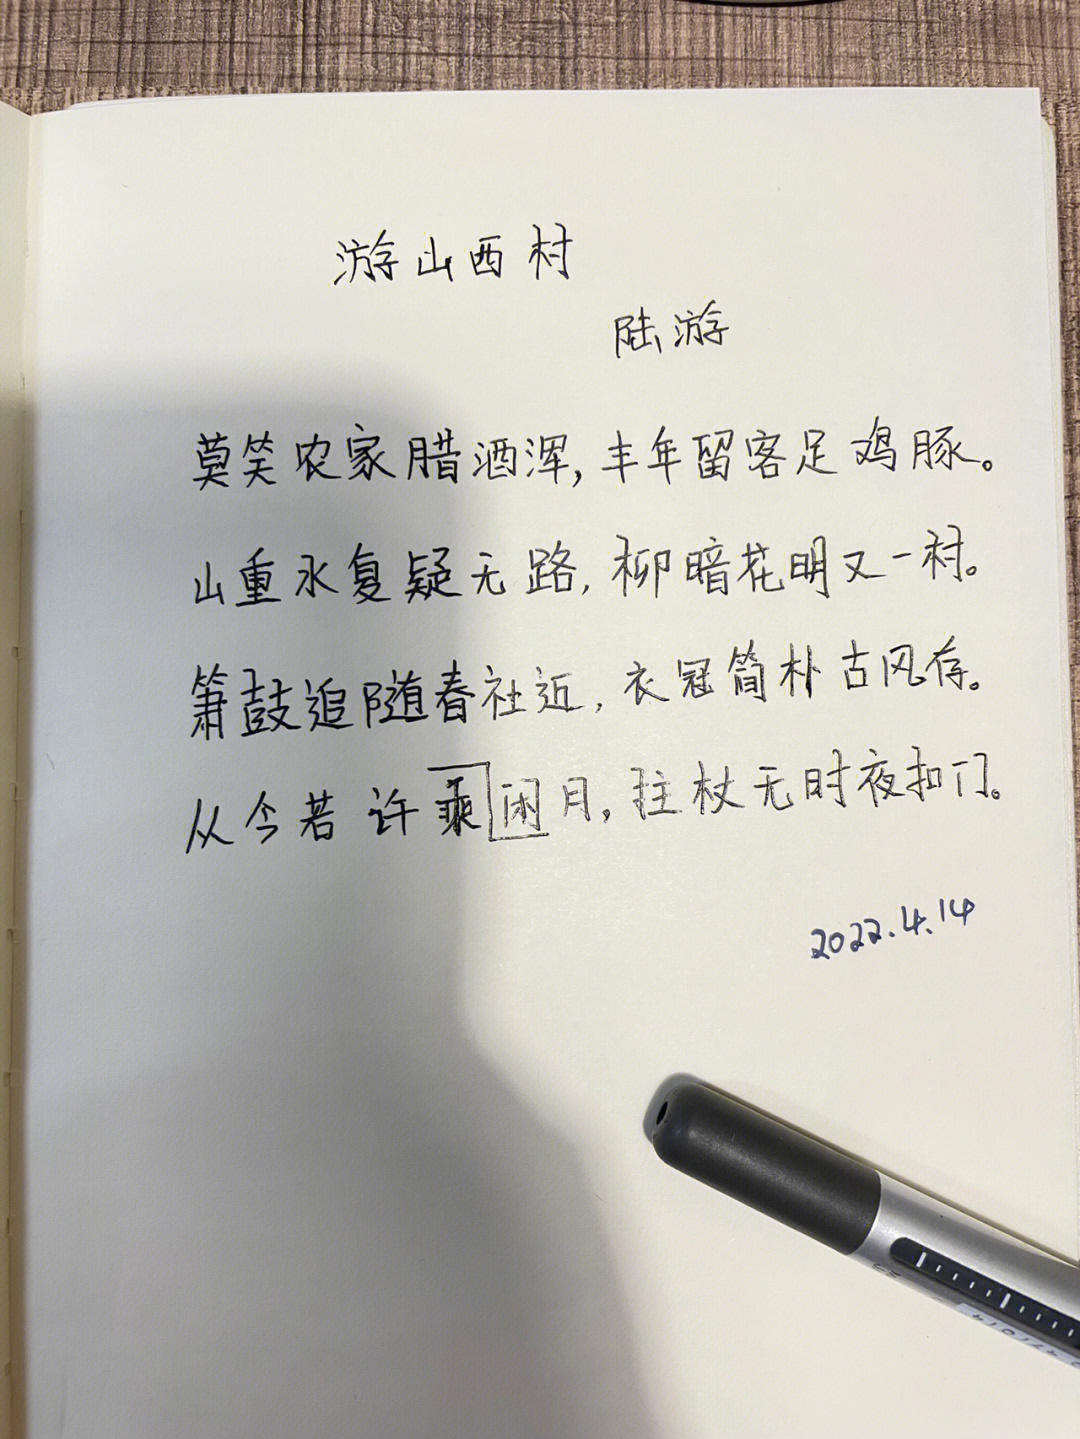 游山西村
陆游
莫笑农家腊酒浑,丰年留客足鸡豚。
山重水复疑无路,柳暗花明又一村。
箫鼓追随春社近,衣冠简朴古风存。
从今若许乘闲月,拄杖无时夜扣门。
2022.4.14